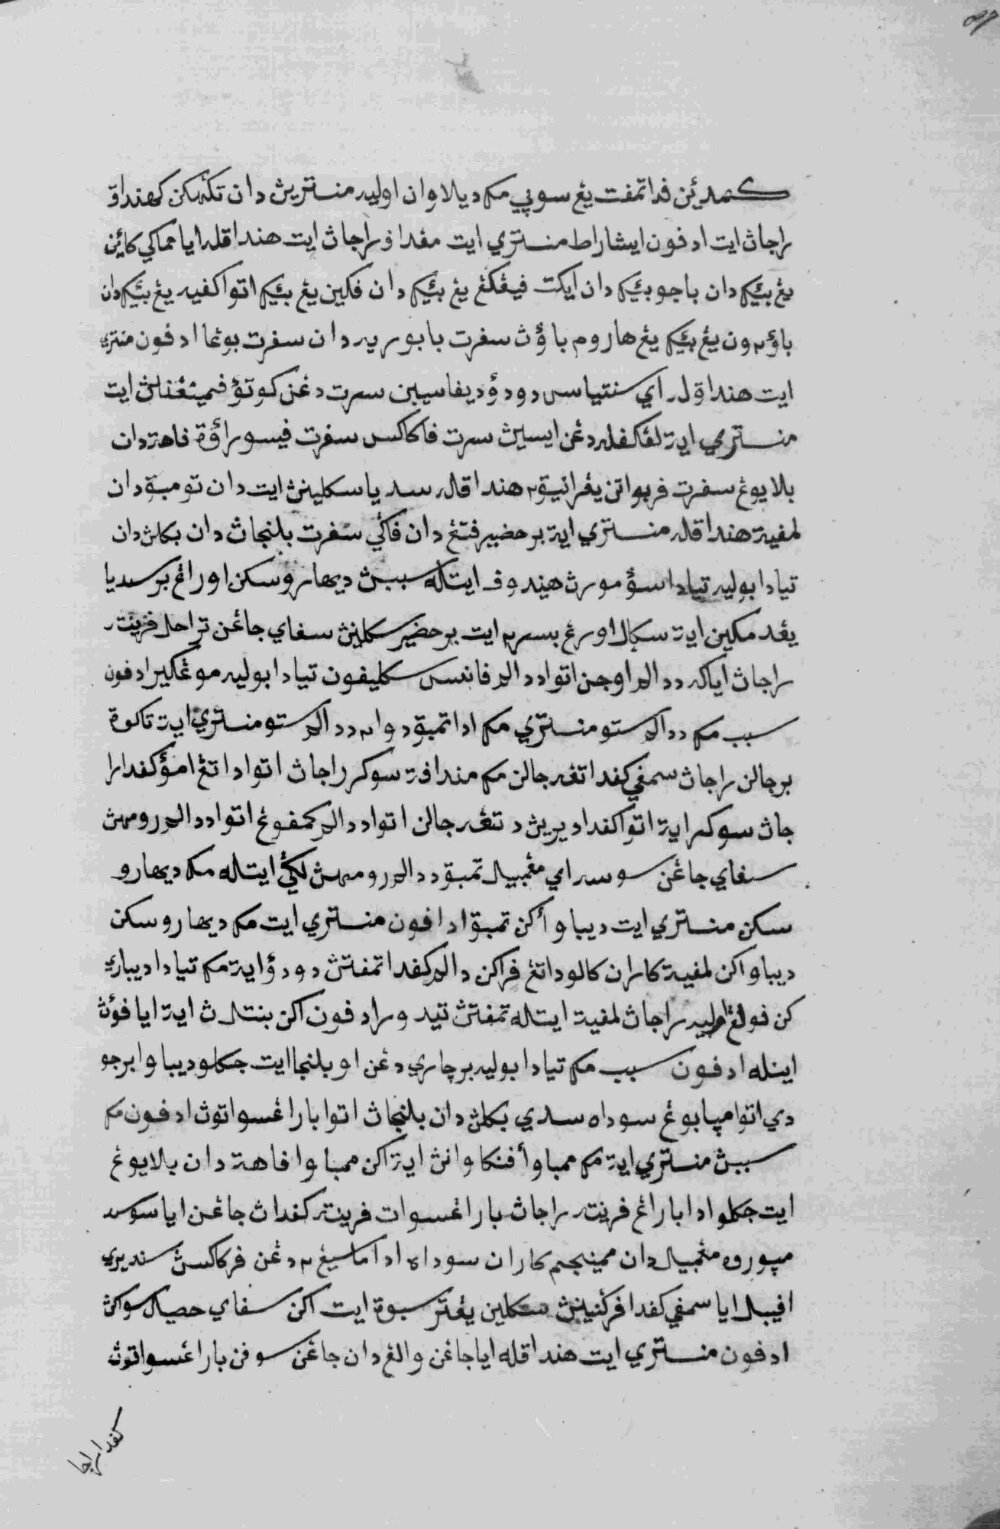 كمدين ڤد اتمڤت يڠ سوڽي مك ديلاوان اوليه منترين دان تڬهكن كهندق
راجاڽ ايت ادڤون ايشارة منتري ايت مڠداڤ راجاڽ ايت هندقله اي مماكي كاين
يڠ بيك دان باجو بيك دان ايكت ڤيڠڬڠ يڠ بيك دان ڤكين يڠ بيك اتو كڤيه يڠ بيك دان
باو٢ون يڠ بيك يڠ هاروم باوڽ سڤرت بابوريه دان سڤرت بوڠا ادڤون منتري
ايت هندقله اي سنتياس دودق دڤاسيبن سرت دڠن كوتق ڤميننڠن ايت
منتري ايت لڠكڤله دڠن ايسين سرت ڤاكاكس سڤرت ڤيسو راوت ڤاهت دان
بلايوڠ سڤرت ڤربواتن يڠ رانيق٢ هندقله سديا سكلين ايت دان تومبق دان
لمڤيت هندقله منتري ايت برحضير ڤتڠ دان ڤاڬي سڤرت بلنجاڽ دان بكلن دان
تياد بوليه تياد اسق موسڽ هيدوڤ ايتله سببڽ ديهاروسكن اورڠ برسديا
يڠدمكين ايت سڬل اورڠ بسر٢ ايت برحضير سكلين سڤاي جاڠن تراحل ڤرينته
راجاڽ اياكه ددالم اوجن اتو ددالم ڤانس سكليڤون تياد ابوليه موڠكير ادڤون
سبب مك ددالم ستو منتري مك اد تمبق دوا٢ ددالم ستو منتري ايت تاكوت
برجالن راجاڽ سمڤي كڤد تڠه جالن مك منداڤت سوكر راجاڽ اتو داتڠ امق كڤد را
جاڽ سوكر ايت اتو كڤد ديريڽ دتڠه جالن اتو ددالم كمڤوڠ اتو ددالم رومهڽ
سڤاي جاڠن سوسه اي مڠمبيل تمبق ددالم رومهڽ لاڬي ايتله مك ديهارو
سكن منتري ايت ديباواكن تمبق ادڤون منتري ايت مك ديهاروسكن
ديباواكن لمڤيت كاران كالو داتڠ ڤراكن دالم كڤد تمڤتڽ دودق ايت مك تياد ديباري
كن ڤولڠ اوليه راجاڽ لمڤيت ايتله تمڤتڽ تيدور ادڤون اكن بنتلڽ ايت اياڤون
اينله ادڤون سبب مك تياد ابوليه برچاري دڠن او بلنجا ايت جكلو ديباوا برجو
دي اتو مپابوڠ سوده سدي بكلن دان بلنجاڽ اتو بارڠ سواتوڽ ادڤون مك
سببڽ منتري ايت مك ممباوا ڤڠكاوانڽ ايت اكن ممباوا ڤاهت دان بلايوڠ
ايت جكلو اد بارڠ ڤرينته راجاڽ بارڠ سوات ڤرينته كڤداڽ جاڠن اي سوسه
مپوروه مڠمبيل دان ممينجم كاران سوده اد ماسيڠ٢ دڠن ڤركاكسڽ سنديري
اڤبيل اي سمڤي كڤد ڤركنين سكلين يڠترسبوت ايت اكن سڤاي حصيل سوكڽ
ادڤون منتري ايت هندقله اي جاڠن والڠ دان جاڠن سوڤن بارڠ سواتوڽ
كڤد راجا